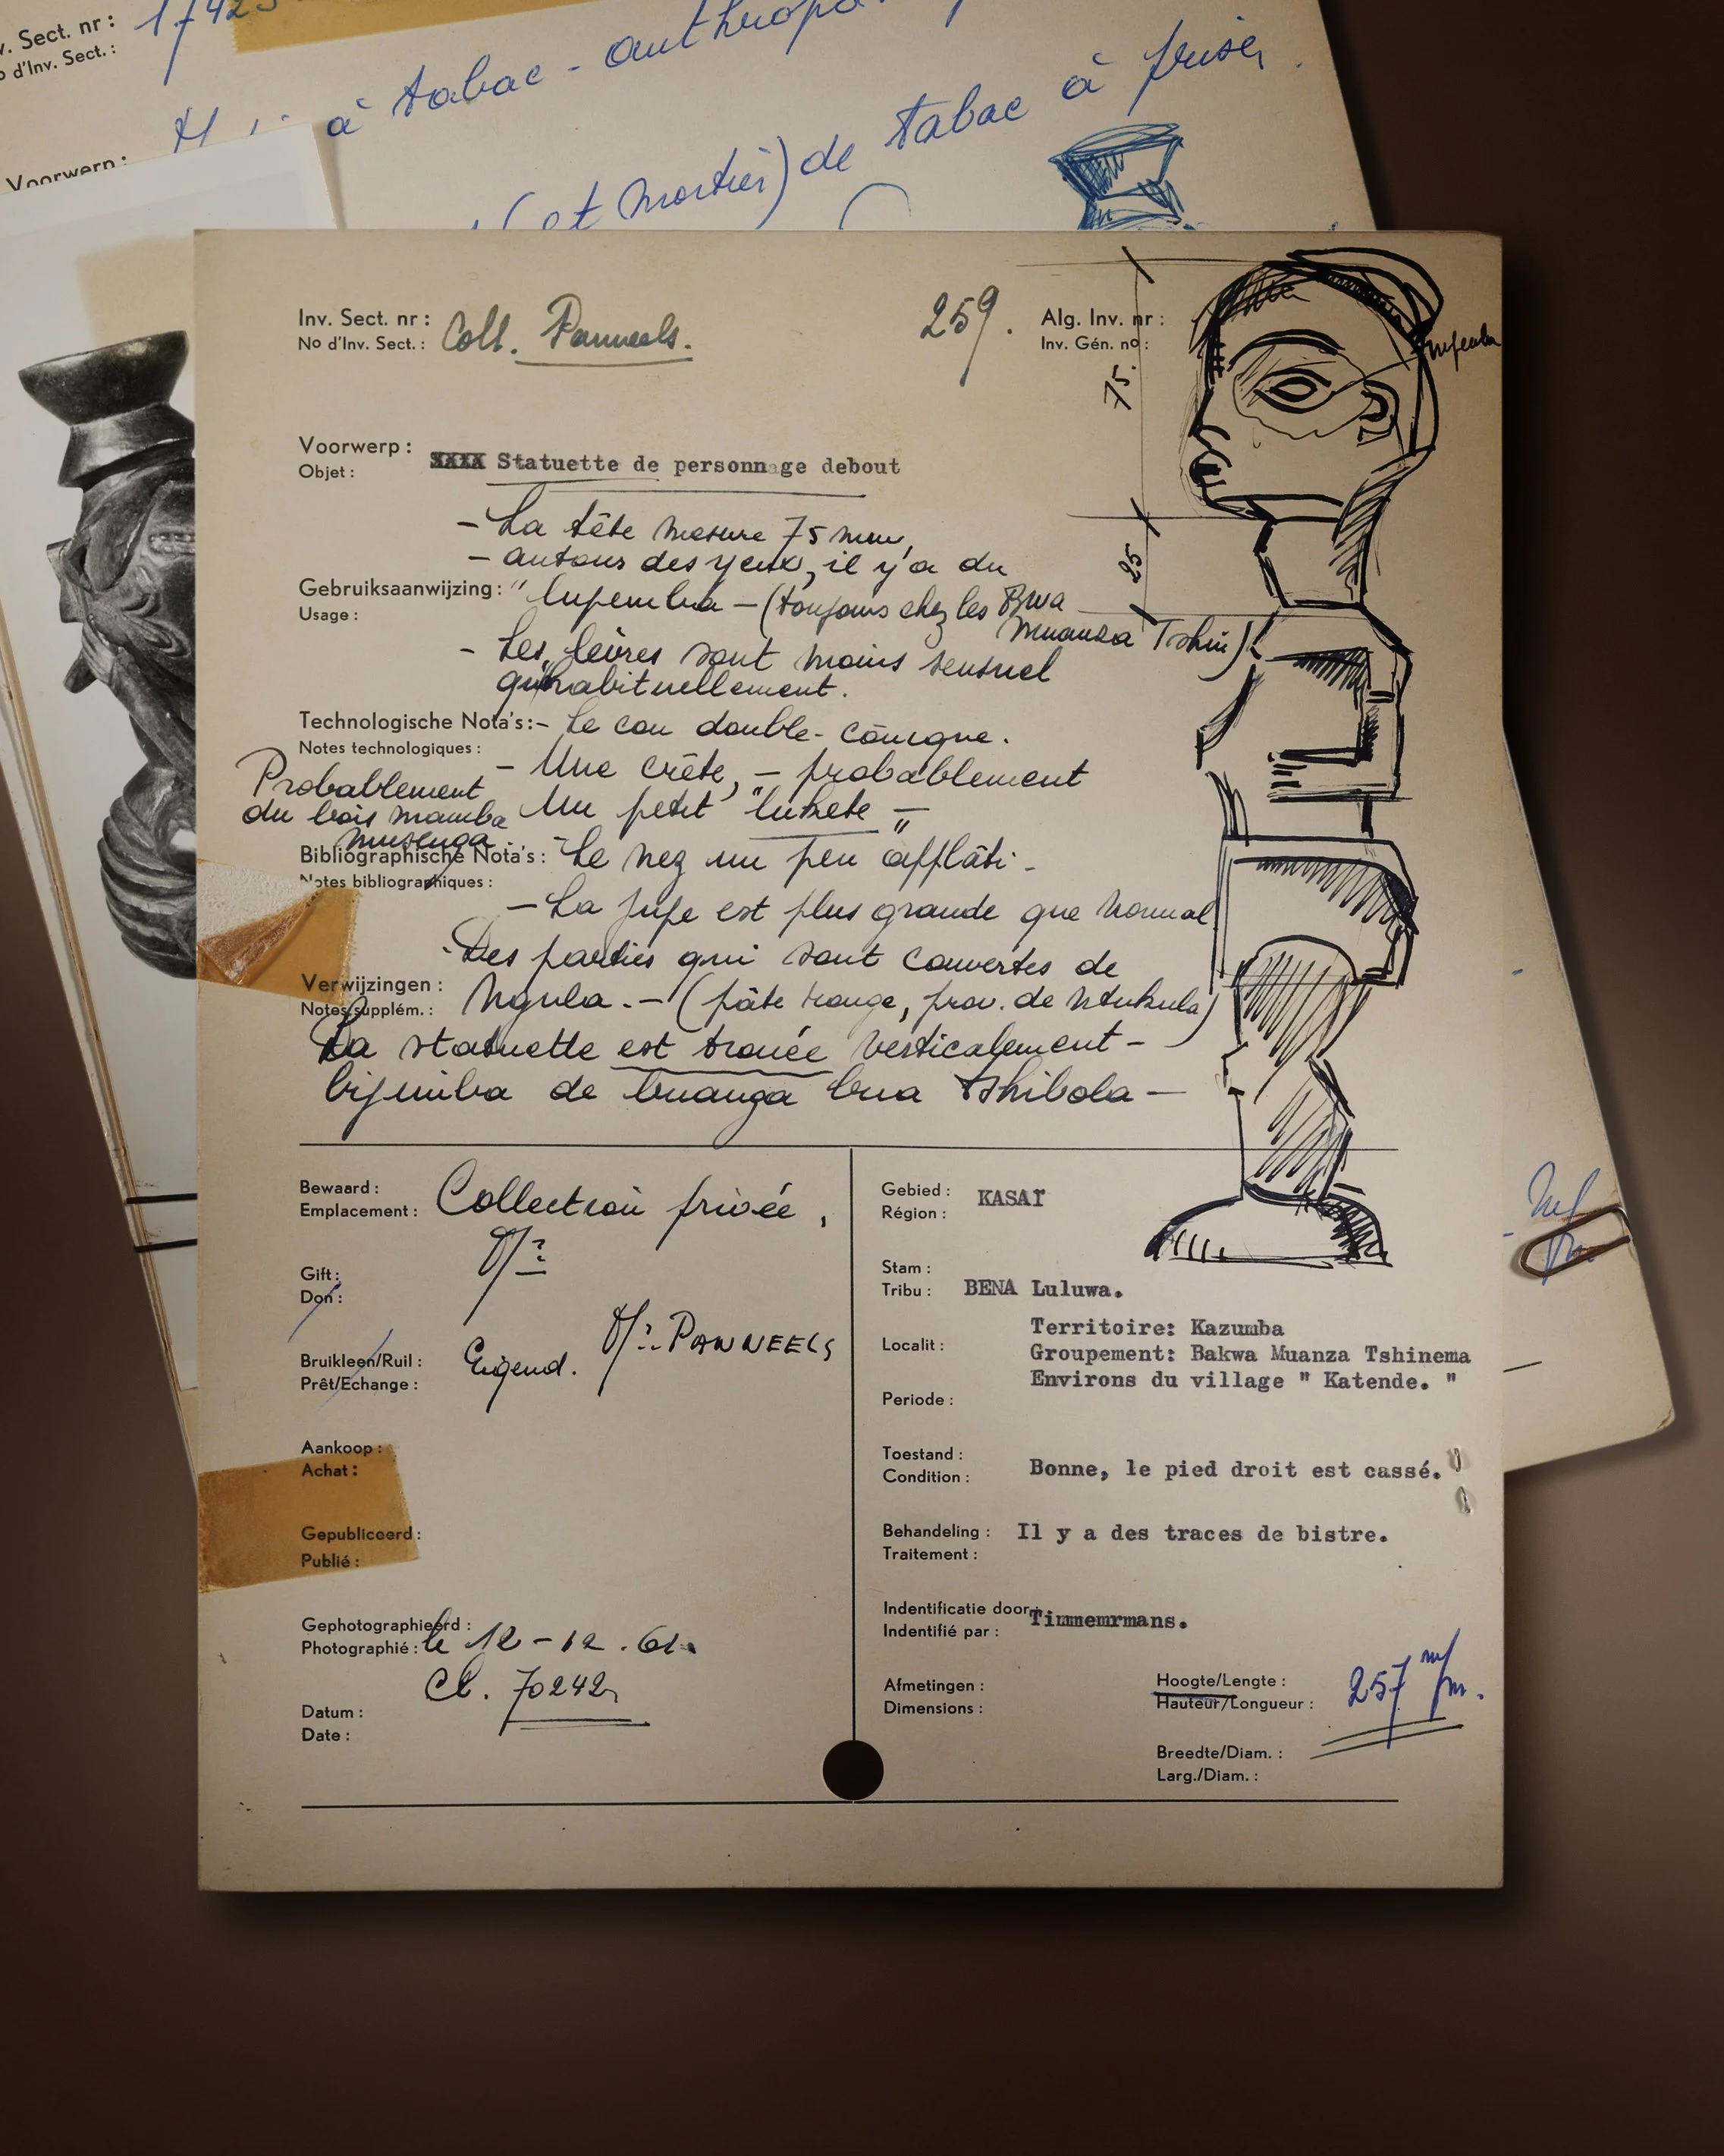 v. Sect. nr :
o d'Inv. Sect. :
Voorwerp :
à tabac - anthropo
(et Mortier) de tabac à priser.
Inv. Sect. nr :
No d'Inv. Sect. :
Coll. Panneels.
259.
Alg. Inv. nr :
Inv. Gén. no :
75.
lupemba
Voorwerp :
Objet :
XXXX Statuette de personnage debout
- La tête mesure 75 mm,
- autour des yeux, il y'a du
25
Gebruiksaanwijzing :
Usage :
"lupemba - (toujours chez les Bwa
Muanza Tshin)!
- Les lèvres sont moins sensuel
qu'habituellement.
Technologische Nota's :
Notes technologiques :
- Le cou double-conique.
- Une crête, - probablement
Un petit "lukete" -
Probablement
du bois mamba
musenga.
Bibliographische Nota's :
Notes bibliographiques :
- Le nez un peu afflâti -
- La jupe est plus grande que normal
- Des parties qui sont couvertes de
Verwijzingen :
Notes supplém. :
Ngula. - (pâte rouge, prov. de Ntukula)
La statuette est trouée verticalement -
bijimba de buanga bua tshibola -
Bewaard :
Emplacement :
Collection privée,
Gift :
Don :
Bruikleen/Ruil :
Prêt/Echange :
Eigend.
PANNEELS
Aankoop :
Achat :
Gepubliceerd :
Publié :
Gephotographieerd :
Photographié :
le 12-12.61.
Cl. 70242
Datum :
Date :
Gebied :
Région :
KASAI
Stam :
Tribu :
BENA Luluwa.
Localit :
Territoire: Kazumba
Groupement: Bakwa Muanza Tshinema
Environs du village " Katende. "
Periode :
Toestand :
Condition :
Bonne, le pied droit est cassé.
Behandeling :
Traitement :
Il y a des traces de bistre.
Indentificatie door :
Indentifié par :
Timmemrmans.
Afmetingen :
Dimensions :
Hoogte/Lengte :
Hauteur/Longueur :
257 m/m.
Breedte/Diam. :
Larg./Diam. :